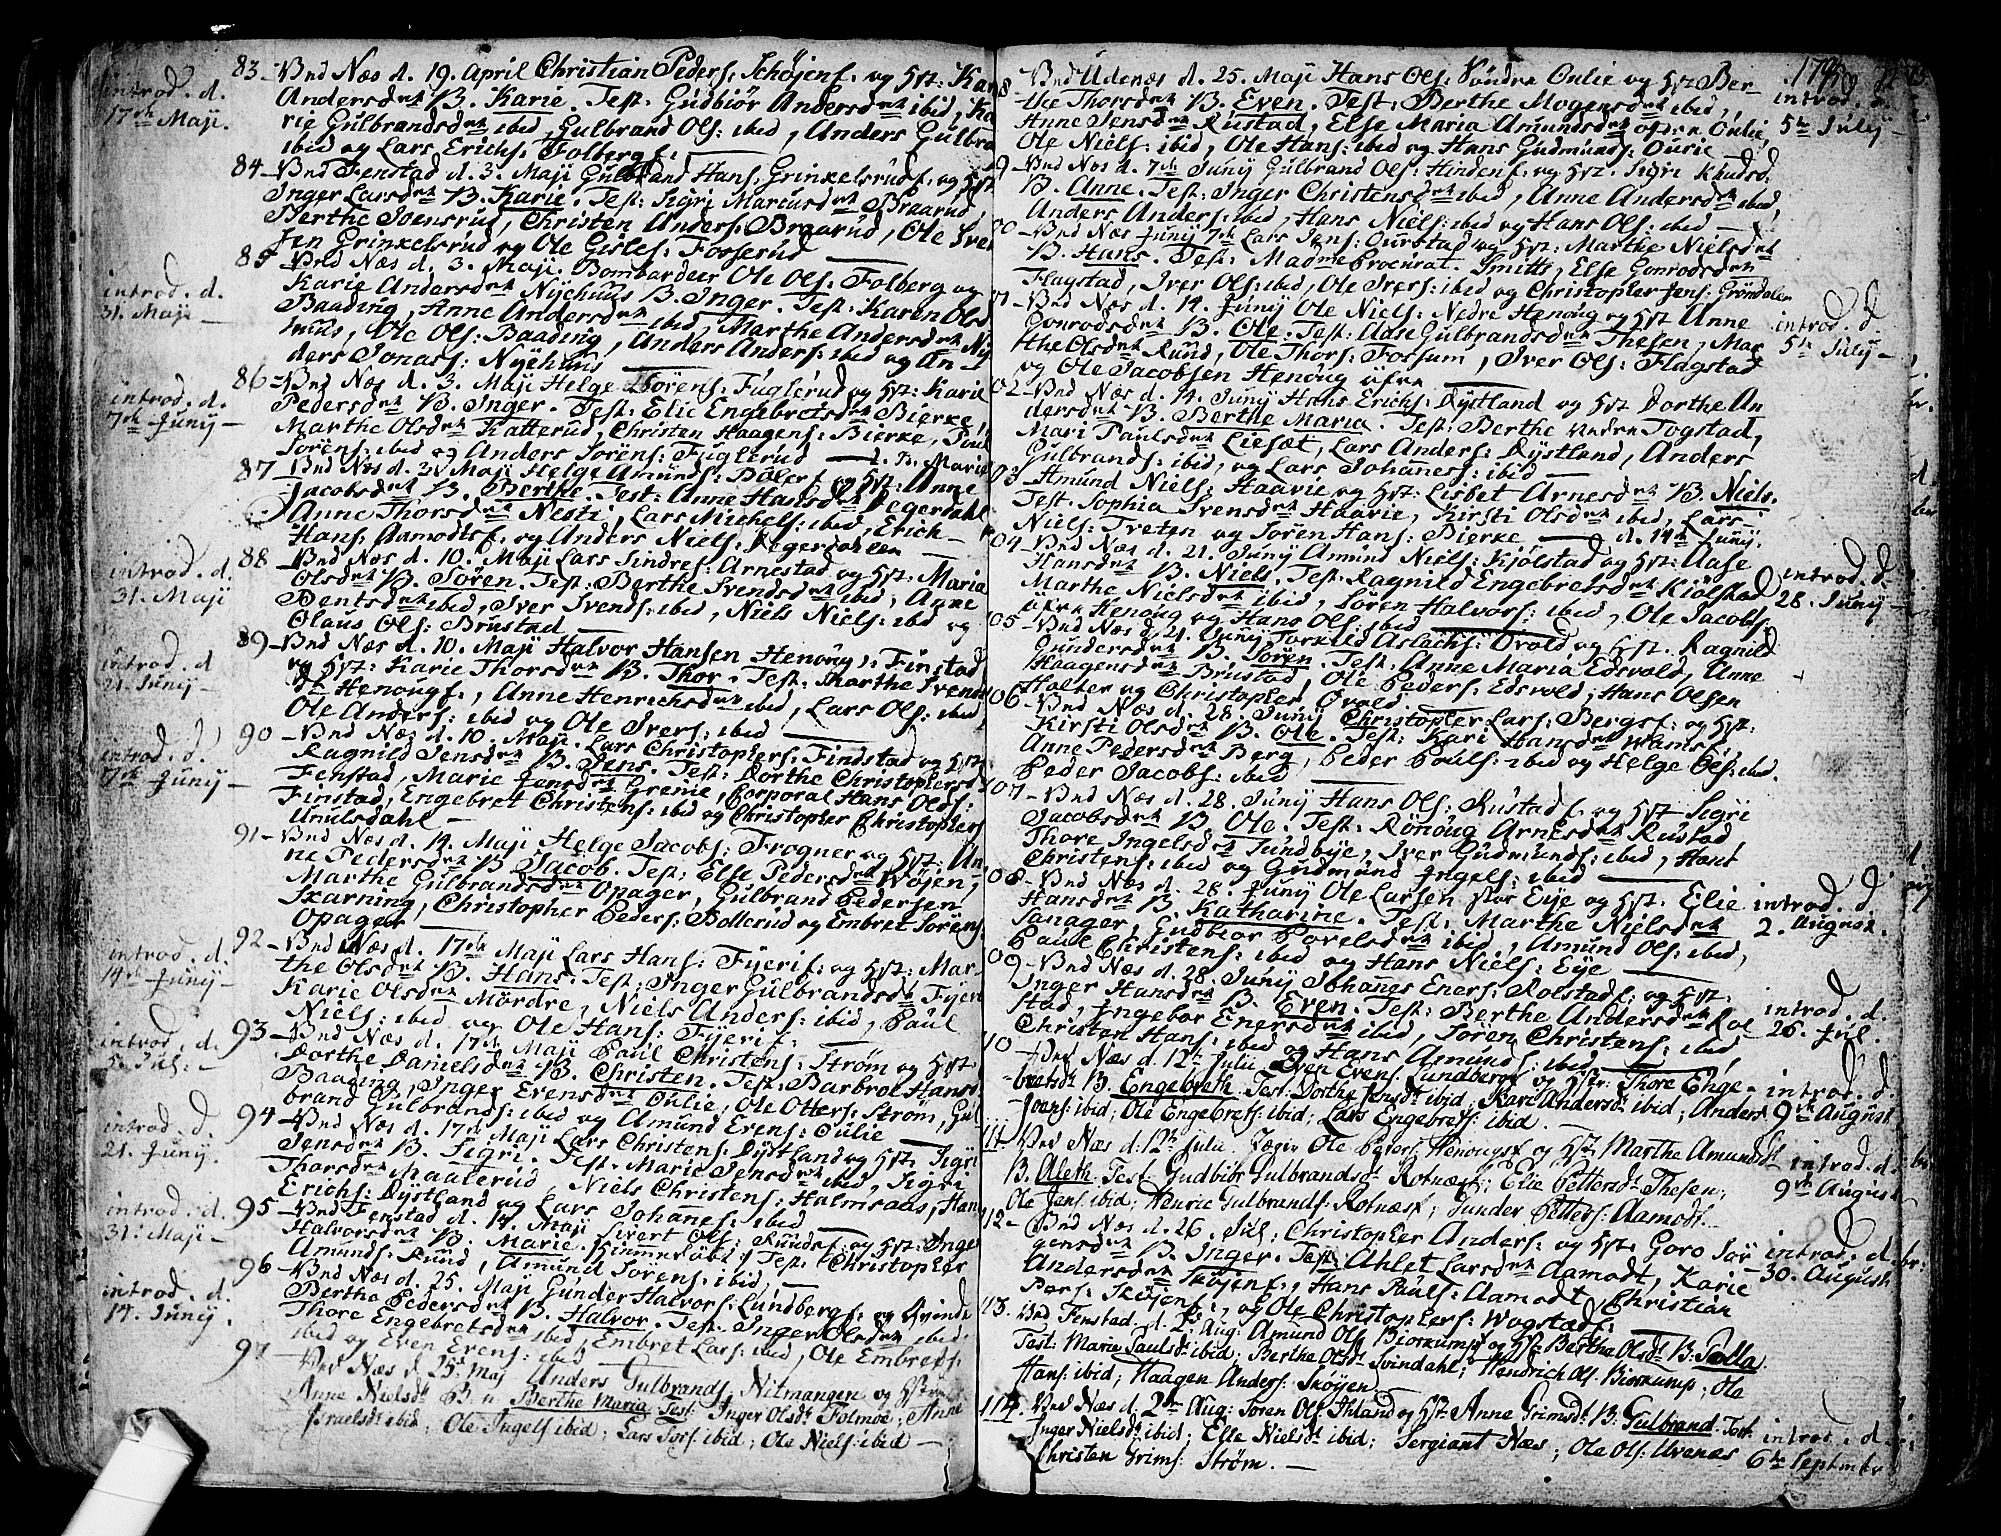 introd. d.
17de Maji.
83 - Vnd Næs d. 19. April Christian Peders: Schøjens: og Hst: Kari
Andersdatr B. Karie. Test: Gudbiør Andersdatr ibid, Ka
rie Gulbrandsdatr ibid, Gulbrand Ols: ibid, Anders Gulbra
ibid og Lars Erichs: Folbergs:
84 - Vnd Fenstad d. 3. Maji Gulbrand Hans: Grinkelsruds: og Hst
Inger Larsdatr B. Karie. Test: Sigri Marcusdatr Braarud
Berthe Svensrud, Christen Anders: Braarud, Ole Sven
sen Grinkelsrud og Ole Gisles: Fosserud
introd. d.
31. Maji -
85 - Vnd Næs d. 3. Maji. Bombardeer Ole Ols: Folberg og
Karie Andersdatr Nyehuus B. Inger. Test: Karen Olsd
Baading, Anne Andersdatr ibid, Marthe Andersdatr Ny
huus, Ole Ols: Baading, Anders Anders: ibid og An-
ders Jonas: Nyehuus
introd. d.
7de Junij -
86 - Vnd Næs d. 3. Maji Helge Sörens: Fuglerud og Hst: Karie
Pedersdatr B. Inger. Test: Elie Engebretsdatr Bierke,
Marthe Olsdatr Katterud, Christen Haagens: Bierke, Poul
Sörens: ibid og Anders Sörens: Fuglerud
87 - Vnd Næs d. 3. Maji Helge Amunds: Bölers: og Hst: Anne Marie
Jacobsdatr B. Berthe. Test: Anne Hansdatr Degerdahl
Anne Thorsdatr Nesti, Lars Michels: ibid, Erich
Hans: Aamodts: og Anders Niels: Degerdahlen
introd. d.
31. Maji
88 - Vnd Næs d. 10. Maji Lars Sindres: Arnestad og Hst: Maria
Olsdatr B. Sören. Test: Berthe Svendsdatr ibid, Anne
Bentsdatr ibid, Iver Svends: ibid, Niels Niels: ibid og
Olaus Ols: Brustad
introd. d
21. Junij -
89 - Vnd Næs d. 10. Maji Halvor Hansen Henöug): Finstad
og Hst: Karie Thorsdatr B. Thor. Test: Marthe Svends
dr Henöugs:, Anne Henrichsdatr ibid, Lars Ols: ibid,
Ole Anders: ibid og Ole Ivers: ibid
introd. d.
7de Junij -
90 - Vnd Næs d. 10. Maji. Lars Christophers: Findstad og Hst:
Ragnild Jensdatr B. Jens. Test: Dorthe Christophersd
Fenstad, Marie Jensdatr Grenie, Corporal Hans Olds:
Finstad, Engebret Christens: ibid og Christopher Christophers
Amlsdahl -
91 - Vnd Næs d. 14. Maji Helge Jacobs: Frogner og Hst: An
ne Pedersdatr B. Jacob. Test: Else Pedersdatr Wöjen,
Marthe Gulbrandsdatr Opager, Gulbrand Pedersen
Skarning, Christopher Peders: Bollerud og Embret Sörens
Opager
introd. d.
14de Junij -
92 - Vnd Næs d. 17de Maji Lars Hans: Fijeris: og Hst: Mar-
the Olsdatr B. Hans. Test: Inger Gulbrandsdatr Fijeri
Karie Olsdatr Mördre, Niels Anders: ibid, Paul
Niels: ibid og Ole Hans: Fijeris:
introd. d.
5. Jul: -
93 - Vnd Næs d. 17de Maji Paul Christens: Ström og Hst:
Dorthe Danielsdatr B. Christen. Test: Barbroe Hansd
Baading, Inger Evensdatr Oulie, Ole Otters: Strøm, Gul
brand Gulbrands: ibid og Amund Evens: Oulie
introd. d.
21. Junij.
94 - Vnd Næs d. 17d Maji Lars Christens: Dystland og Hst: Sigri
Jensdatr B. Sigri. Test: Marie Jensdatr ibid, Sigri
Thorsdatr Maalerud, Niels Christens: Halmsaas, Hans
Erichs: Dystland og Lars Johanes: ibid
introd. d.
31. Maji -
95 - Vnd Fenstad d. 17. Maji Sivert Ols: Ruuds: og Hst: Inge
Halvorsdatr B. Marie. Test: Christopher
Amunds: Ruud, Amund Sörens: ibid, -
introd. d.
14. Junij.
96 - Vnd Næs d. 25. Maji Gunder Halvors: Lundbergs: og Qvinde
Berthe Pedersdatr B. Halvor. Test: Inger Olsdatr ibid.
Thore Engebretsdatr ibid, Embret Lars: ibid, Ole Embrets:
ibid og Even Evens: ibid
97 - Vnd Næs d 25d Maj Anders Gulbrands: Nitmangen og Hstr
Anne Nielsdr B. n Berthe Maria Test: Inger Olsdr Folmoe; Anne
Israelsdr ibid; Ole Ingels: ibid; Lars Tors: ibid; Ole Niels: ibid -
1795
8 - Vnd Udenæs d. 25. Maji Hans Ols: Söndre Oulie og Hst Ber-
the Thorsdatr B. Even. Test: Berthe Mogensdatr ibid,
Anne Jensdatr Rustad, Else Maria Amundsdatr Oulie,
Ole Niels: ibid, Ole Hans: ibid og Hans Gudmunds: Ourie
introd. d.
5te Julij -
9 - Vnd Næs d. 7de Junij Gulbrand Ols: Hindens: og Hst. Sigri Knudsd.
B. Anne. Test: Inger Christensdatr ibid, Anne Andersdatr ibid,
Anders Anders: ibid, Hans Niels: ibid og Hans Ols: ibid -
00 - Vnd Næs Junij 7de Lars Jens: Ourstad og Hst: Marthe Nielsdatr
B. Hans. Test: Madme Procurat. Smitts, Else Gonrodsdatr
Flagstad, Iver Ols: ibid, Ole Ivers: ibid og Christopher Jens: Gröndalen
01 - Vnd Næs d. 14. Junij Ole Niels: Nedre Henöug og Hst Anne
Gonrodsdatr B. Ole. Test: Aase Gulbrandsdatr Thesen, Mar
the Olsdatr Ruud, Ole Thors: Fossum, Iver Ols: Flagstad
og Ole Jacobsen Henöug öfre
introd. d.
5te Julij -
02 - Vnd Næs d. 14. Junij Hans Erichs: Dystland og Hst Dorthe An
dersdatr B. Berthe Maria. Test: Berthe Togstad,
Mari Paulsdatr Liesæt, Lars Anders: Dystland, Anders
Gulbrands: ibid, og Lars Johanes: ibid -
03 - Amund Niels: Haavie og Hst: Lisbet Arnesdatr B. Niels.
Test. Sophia Svensdatr Haavie, Kirsti Olsdatr ibid, Lars
Niels: Tveten og Sören Hans: Bierke - d. 14de Junij.
04 - Vnd Næs d. 21. Junij Amund Niels: Kjölstad og Hst: Aase
Hansdatr B. Niels. Test: Ragnild Engebretsdatr Kiölstad
Marthe Nielsdatr ibid, Sören Halvors: ibid, Ole Jacobs:
öfre Henöug og Hans Ols: ibid
introd. d.
28. Junij -
05 - Vnd Næs d. 21. Junij Torkild Aslachs: Ovold og Hst. Ragnild
Gundersdatr B. Sören. Test: Anne Maria Edsvold, Anne
Haagensdatr Brustad, Ole Peders: Edsvold, Hans Olsen
Holter og Christopher Ovold
06 - Vnd Næs d. 28. Junij Christopher Lars: Bergs: og Hst:
Kirsti Olsdatr B. Ole. Test: Kari Hansdatr
Anne Pedersdatr Berg, Peder Pouls: ibid og Helge Ols: ibid.
Peder Jacobs: ibid
07 - Vnd Næs d. 28. Junij Hans Ols: Rustads: og Hst Sigri
Jacobsdatr B. Ole. Test: Rönoug Arnesdatr Rustad
Thore Ingelsdatr Sundbye, Iver Gudmunds: ibid, Hans
Christens: ibid og Gudmund Ingels: ibid
08 - Vnd Næs d. 28. Junij Ole Larsen stor Eije og Hst: Elie
Hansdatr B. Katharine. Test: Marthe Nielsdatr
Panager, Gudbior Povelsdatr ibid, Amund Ols: ibid,
Paul Christens: ibid og Hans Niels: Eije
introd. d.
2. August.
09 - Vnd Næs d. 28. Junij Johanes Eners: Rolstads: og Hst:
Inger Hansdatr B. Even. Test: Berthe Andersdatr Rol
stad, Ingebor Enersdatr ibid, Sören Christens: ibid
Christen Hans: ibid og Hans Amunds: ibid
introd. d.
26. Jul.
10 - Vnd Næs d. 12te Julii Even Evens: Lundbergs: og Hstr: Thore Enge-
bretsdr B. Engebreth. Test. Dorthe Jensdr ibid, Kari Andersdr ibid, Anders
Joens: ibid; Ole Engebrets: ibid; Lars Engebrets: ibid.
introd. d.
9de August
111 Vnd Næs d: 12te Julii Jæger Ole Peters: Henougs: og Hstr Marthe Amundsdr
B. Aleth. Test Gudbiör Gulbrandsdr Rotnæs:; Elie Pettersdr Thesen,
Ole Jens: ibid; Henric Gulbrands: Rotnæs:, Gunder Petters: Aamodt.
introd. d.
9de August
12 - Vnd Næs d. 26. Jul. Christopher Anders: og Hst: Goro Jör
gensdatr B. Inger. Test: Ahlet Larsdatr Aamodt, Karie
Andersdatr Skøjens:, Hans Pauls: Aamodt, Christian
Pers: Skøjens:, og Ole Christophers: Wogstads:
introd. d.
30. August
113. Vnd Fenstad d. 2. Aug: Amund Ols: Biorkump og Hstr Berthe Olsdr B: Polla.
Test: Marie Paulsdr ibid; Berthe Olsdr Svindahl; Hendrich Ols: Biorkump; Ole
Hans: ibid; Haagen Anders: Skøyen
114. Vnd Næs d. 2den Aug: Soren Ols: Ihland og Hstr Anne Grimsdr B. Gulbrand. Test.
Inger Nielsdr ibid; Else Nielsdr ibid; Sergiant Næs; Ole Ols: Uvenæs
Christen Grims: Strøm. -
introd. d.
6te Septmbr